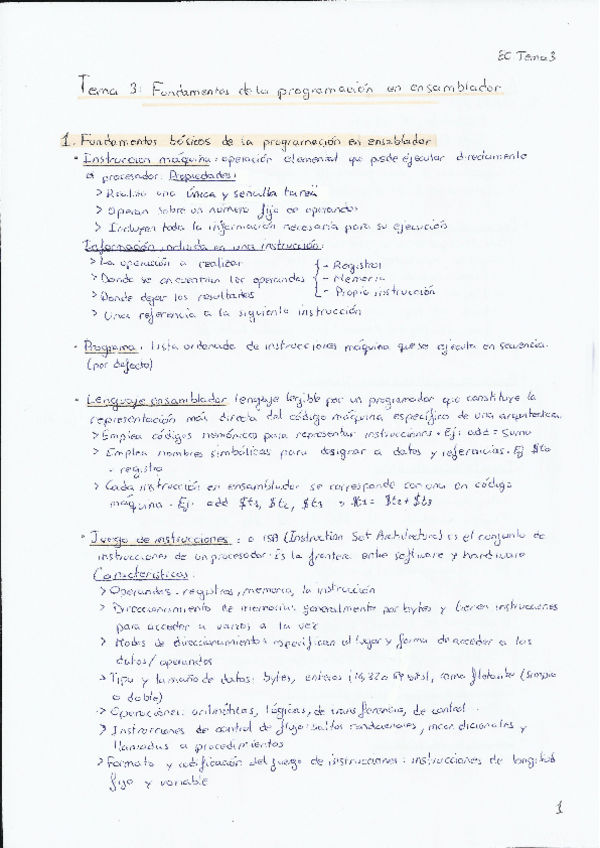 EC Tema 3
Tema 3: Fundamentos de la programación en ensamblador
1. Fundamentos básicos de la programación en ensablador
• Instruccion máquina: operación elemental que puede ejecutar directamente
el procesador. Propiedades:
> Realiza una única y sencilla tarea
> Operan sobre un número fijo de operandos
> Incluyen toda la información necesaria para su ejecución
Información incluida en una instrucción:
> La operación a realizar
> Donde se encuentran los operandos { - Registros - Memoria - Propia instrucción
> Donde dejar los resultados
> Una referencia a la siguiente instrucción
• Programa: lista ordenada de instrucciones máquina que se ejecuta en secuencia.
(por defecto)
• Lenguaje ensamblador lenguaje legible por un programador que constituye la
representación más directa del código máquina específico de una arquitectura.
> Emplea códigos nemónicos para representar instrucciones. Ej: add = suma
> Emplea nombres simbólicos para designar a datos y referencias. Ej $t0
= registro
> Cada instrucción en ensamblador se corresponde con una en código
máquina. Ej: add $t1, $t2, $t3 → $t1 = $t2 + $t3
• Juego de instrucciones: o ISA (Instruction Set Architecture) es el conjunto de
instrucciones de un procesador. Es la frontera entre software y hardware
Características:
> Operandos: registros, memoria, la instrucción
> Direccionamiento de memoria: generalmente por bytes y tienen instrucciones
para acceder a varios a la vez
> Modos de direccionamientos especifican el lugar y forma de acceder a los
datos/operandos
> Tipo y tamaño de datos: bytes, enteros (16, 32 o 64 bits), coma flotante (simple
o doble)
> Operaciones: aritméticas, lógicas, de transferencia, de control.
> Instrucciones de control de flujo: saltos condicionales, incondicionales y
llamadas a procedimientos
> Formato y codificación del juego de instrucciones: instrucciones de longitud
fijo y variable
1